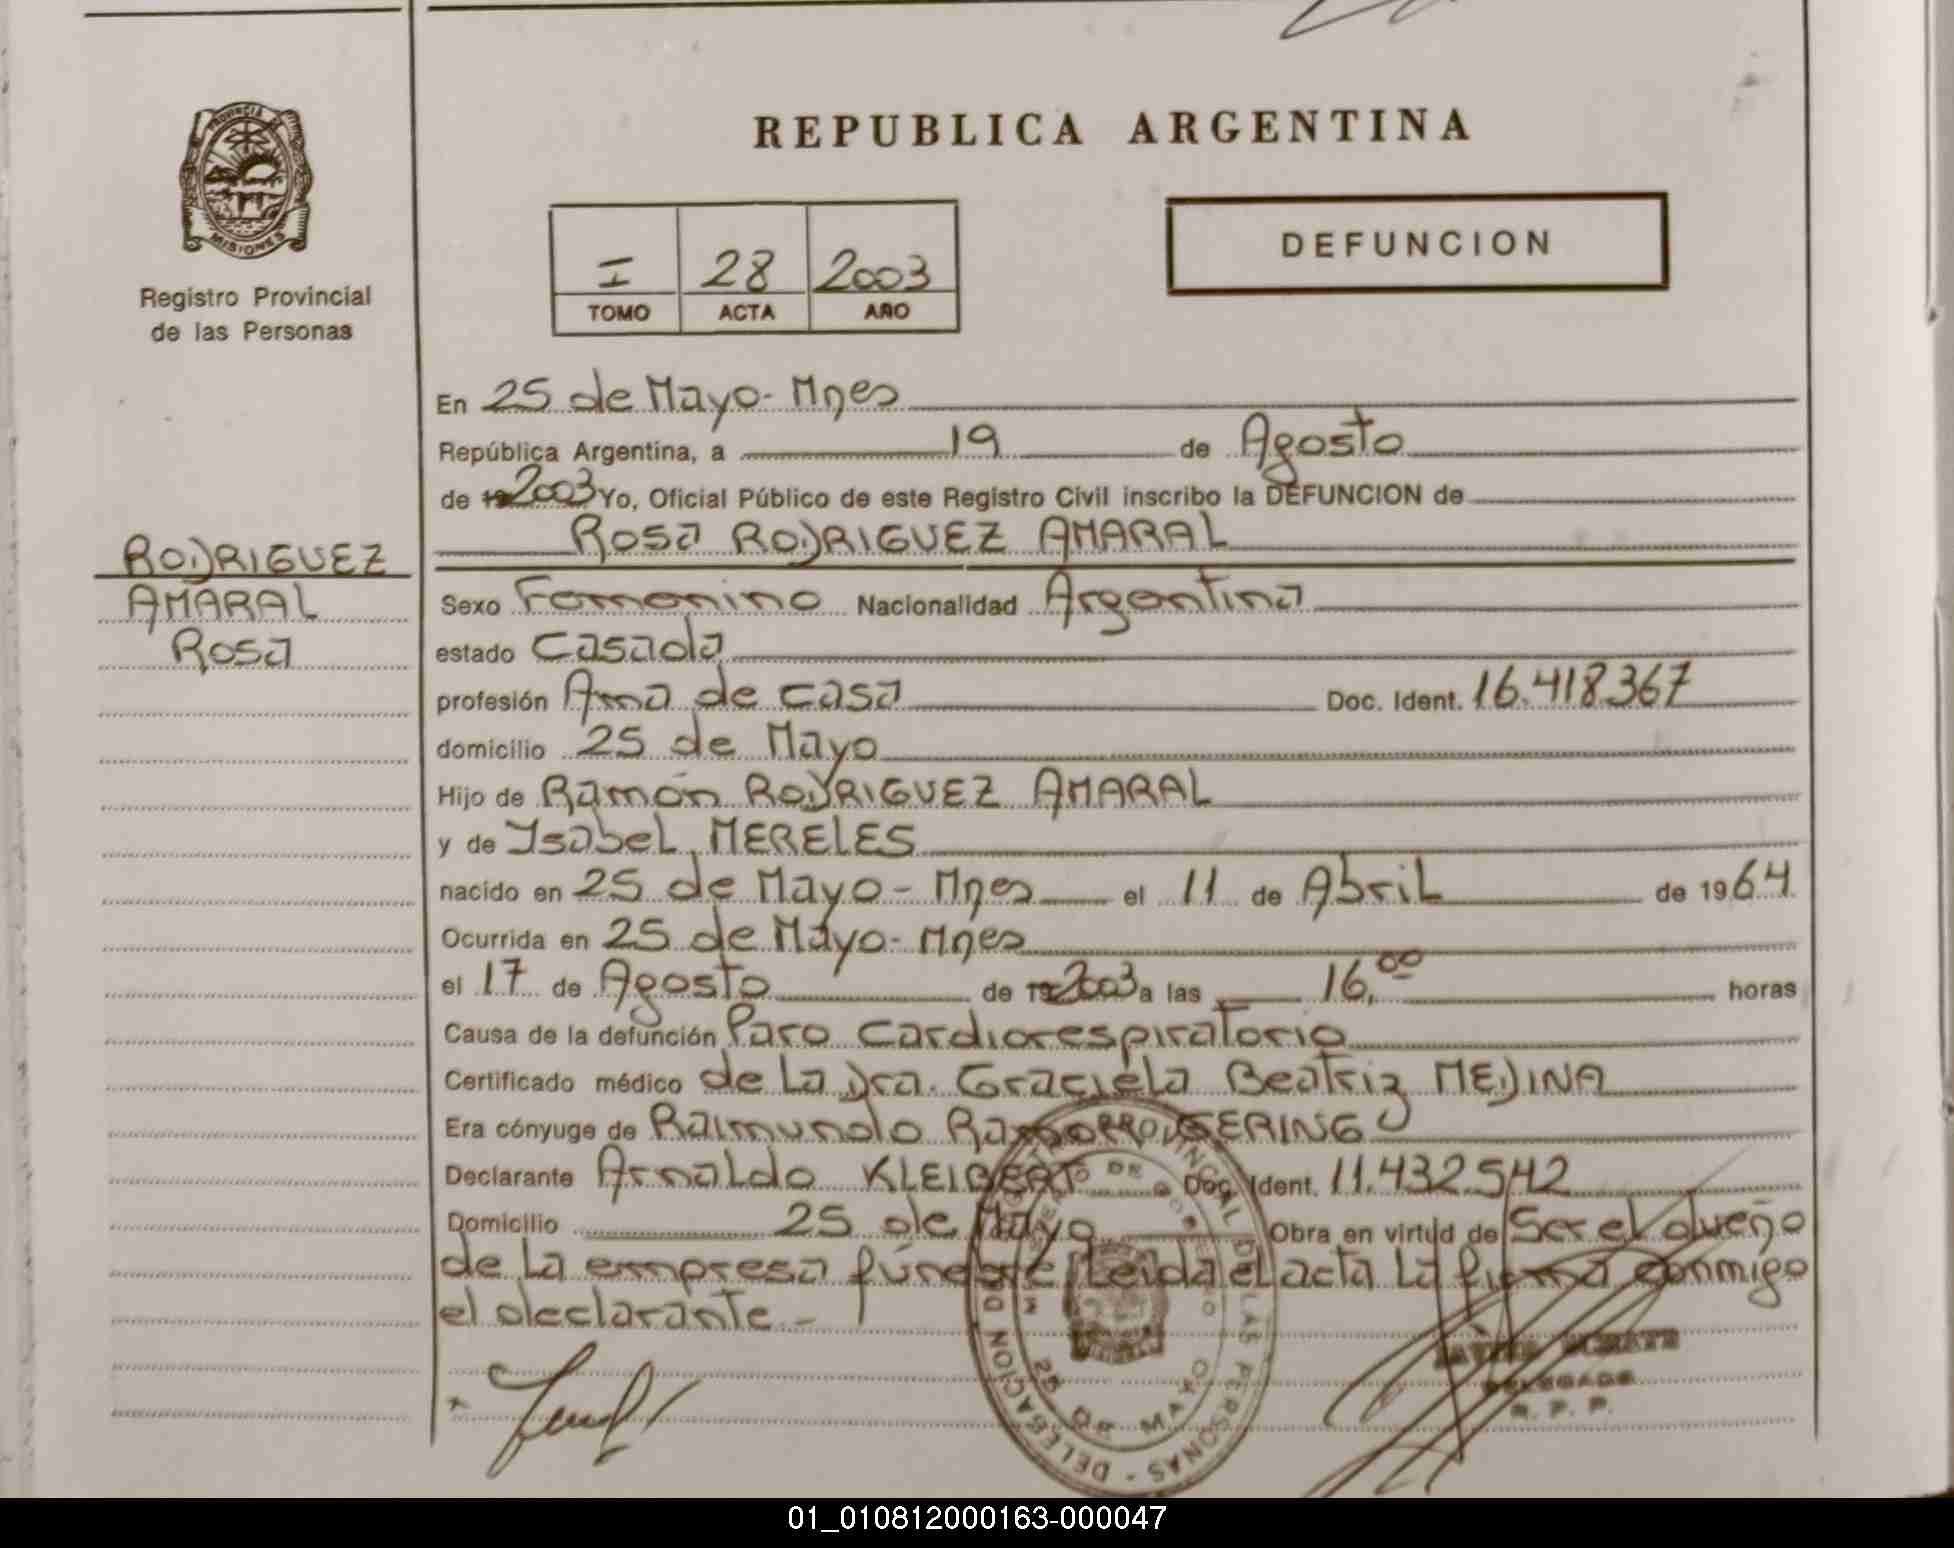 REPUBLICA ARGENTINA
PROVINCIA DE
MISIONES
Registro Provincial
de las Personas
I 28 2003
TOMO ACTA AÑO
DEFUNCION
En 25 de Mayo - Mnes
República Argentina, a 19 de Agosto
de 19 2003 Yo, Oficial Público de este Registro Civil inscribo la DEFUNCION de
Rosa RODRIGUEZ AMARAL
RODRIGUEZ
AMARAL
Rosa
Sexo Femenino Nacionalidad Argentina
estado Casada
profesión Ama de casa Doc. Ident. 16.418.367
domicilio 25 de Mayo
Hijo de Ramón RODRIGUEZ AMARAL
y de Isabel MERELES
nacido en 25 de Mayo - Mnes el 11 de Abril de 1964
Ocurrida en 25 de Mayo - Mnes
el 17 de Agosto de 19 2003 a las 16,00 horas
Causa de la defunción Paro Cardiorespiratorio
Certificado médico de la Dra. Graciela Beatriz MEDINA
Era cónyuge de Raimundo GERING
Declarante Arnaldo KLEIBERT Doc. Ident. 11.432.542
Domicilio 25 de Mayo Obra en virtud de Ser el dueño
de la empresa fúnebre Leida el acta la firma conmigo
el declarante -
DELEGACION 25 DE MAYO
DELEGADO
R. P. P.
01_010812000163-000047